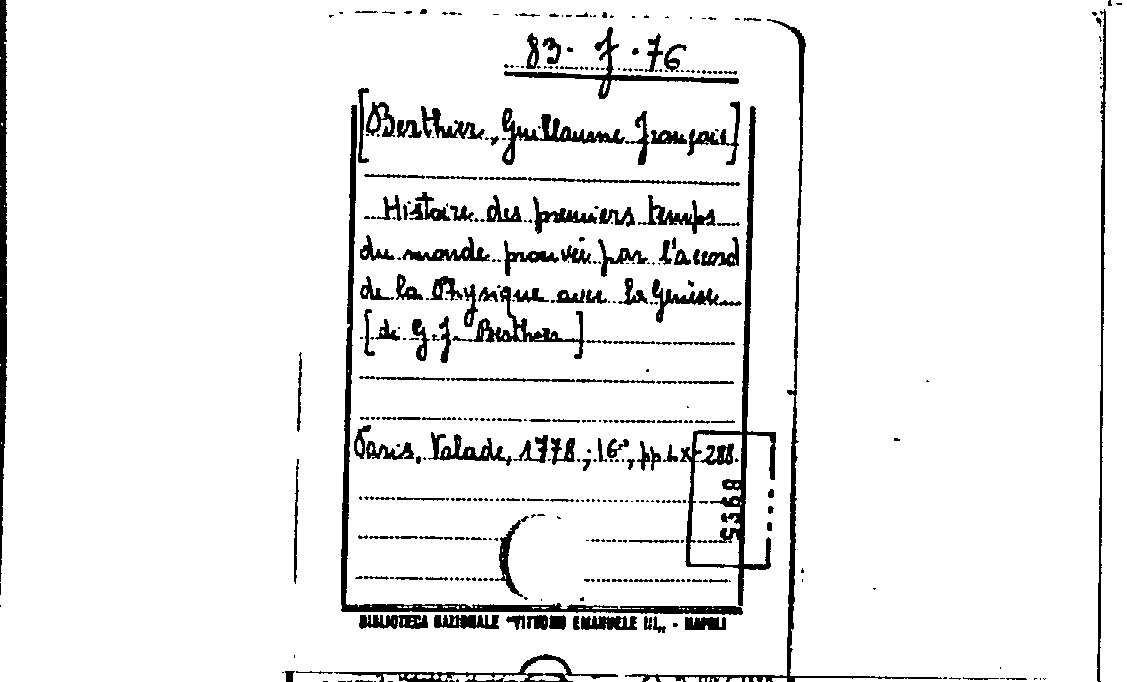 83. J. 76
[Berthier, Guillaume François]
Histoire des premiers temps
du monde prouvée par l'accord
de la Physique avec la Genèse
[de G. J. Berthier]
Paris, Valade, 1778; 16°, pp. LX-288.
5368
BIBLIOTECA NAZIONALE "VITTORIO EMANUELE III„ - NAPOLI